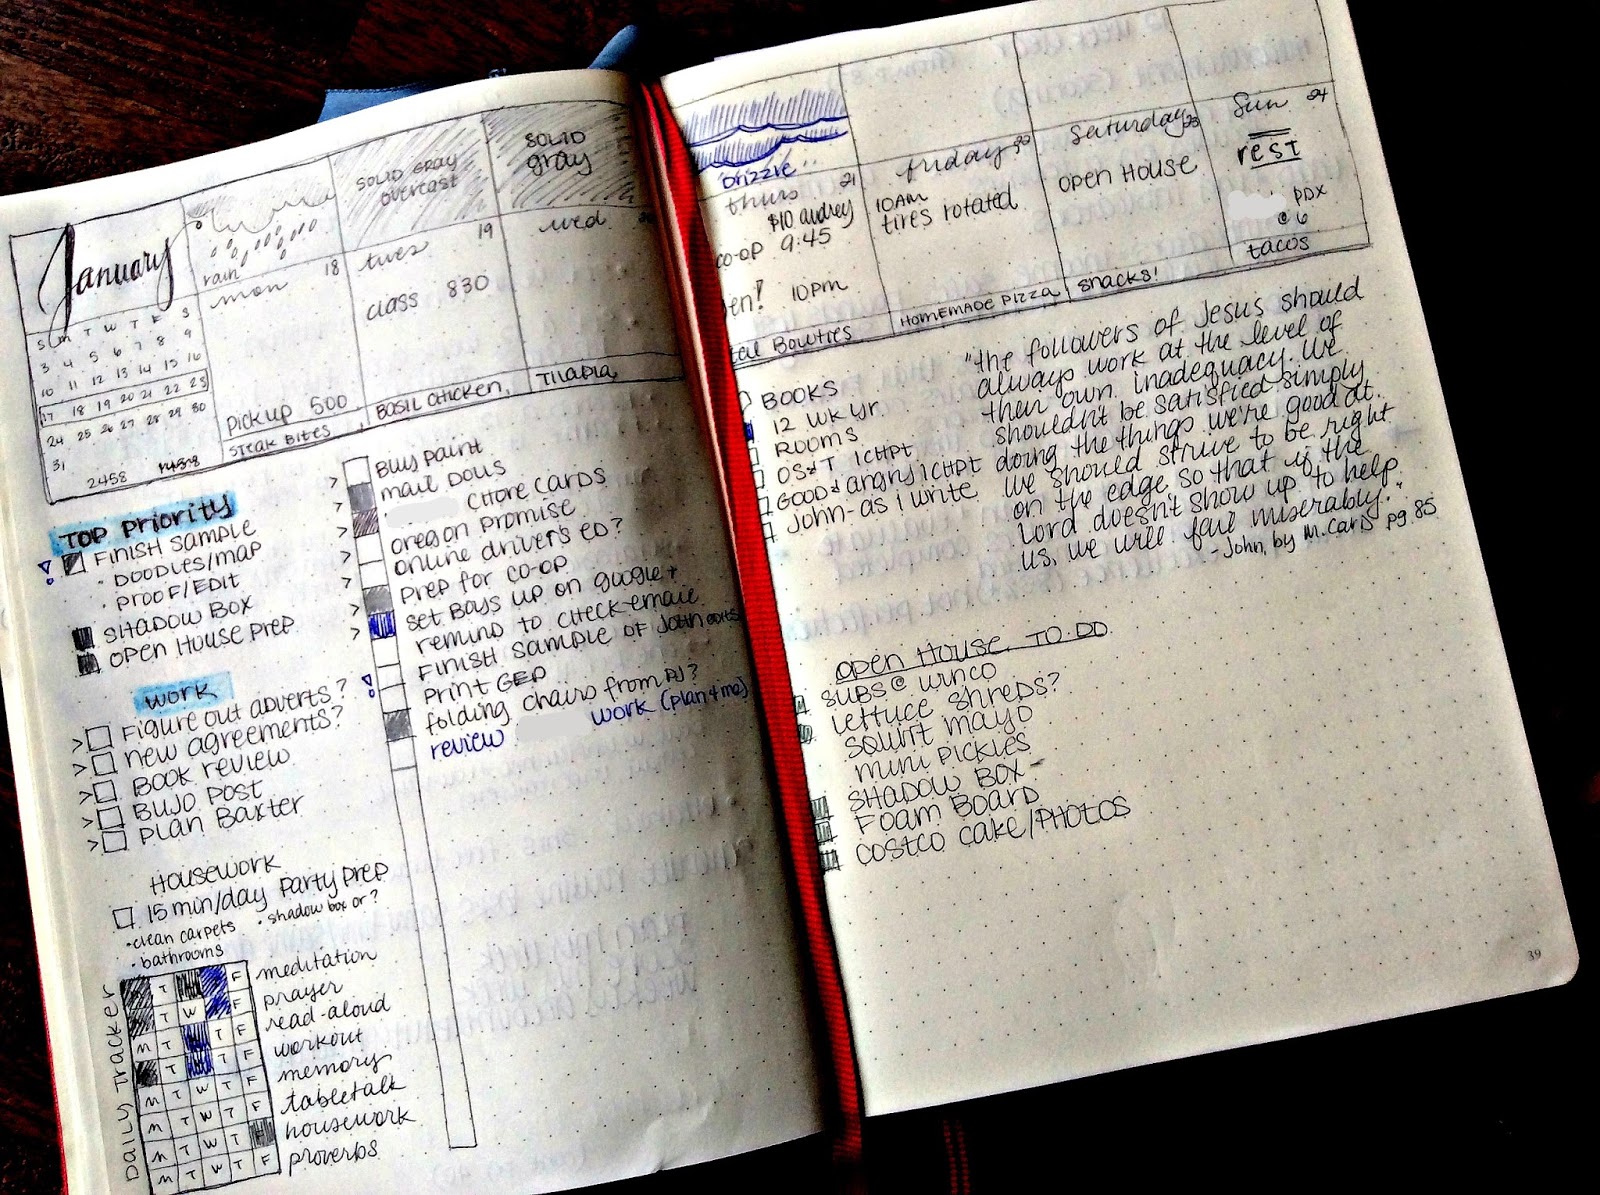 January
S m T W T F S
3 4 5 6 7 8 9
10 11 12 13 14 15 16
17 18 19 20 21 22 23
24 25 26 27 28 29 30
31
2458
rain
mon 18
pickup 500
STEAK BITES
SOLID GRAY
overcast
tues 19
class 830
BASIL CHICKEN,
SOLID
gray
wed
TILAPIA
TOP PRIORITY
FINISH SAMPLE
• DOODLES/map
• PROOF/EDIT
SHADOW BOX
OPEN HOUSE PREP
WORK
> Figure out adverts?
> new agreements?
> BOOK review
> BUJO POST
> PLAN Baxter
HOUSEWORK
15 min/day Party Prep
• clean carpets • shadow box or?
• bathrooms
DAILY TRACKER
T F meditation
T W F prayer
M T T F read-aloud
T T F workout
M T W T F memory
M T W T F tabletalk
M T W T housework
M T W T F proverbs
> BUY paint
> mail DOLLS
> CHORE CARDS
oregon promise
online driver's ED?
> Prep for co-op
> set Boys up on google+
> remind to check email
FINISH SAMPLE OF John
Print GED
folding chairs from PJ?
review work (plan 4 me)
Drizzle..
thurs 21
$10 audrey
co-op 9:45
10pm
Bowties
friday
10AM
tires rotated
HOMEMADE PIZZA
Saturday 23
OPEN HOUSE
snacks!
Sun 24
rest
PDX
@ 6
tacos
BOOKS
12 WK yr.
ROOMS
OS&T 1CHPT
GOOD & angry 1CHPT
John- as i write
"the followers of Jesus should
always work at the level of
their own inadequacy. We
shouldn't be satisfied simply
doing the things we're good at.
we should strive to be right
on the edge so that if the
Lord doesn't show up to help
us, we will fail miserably."
- John, by M. Card pg. 85
OPEN HOUSE TO-DO
SUBS @ WINCO
Lettuce shreds?
Squirt mayo
mini pickles
SHADOW BOX-
Foam Board
COSTCO CAKE/PHOTOS
39